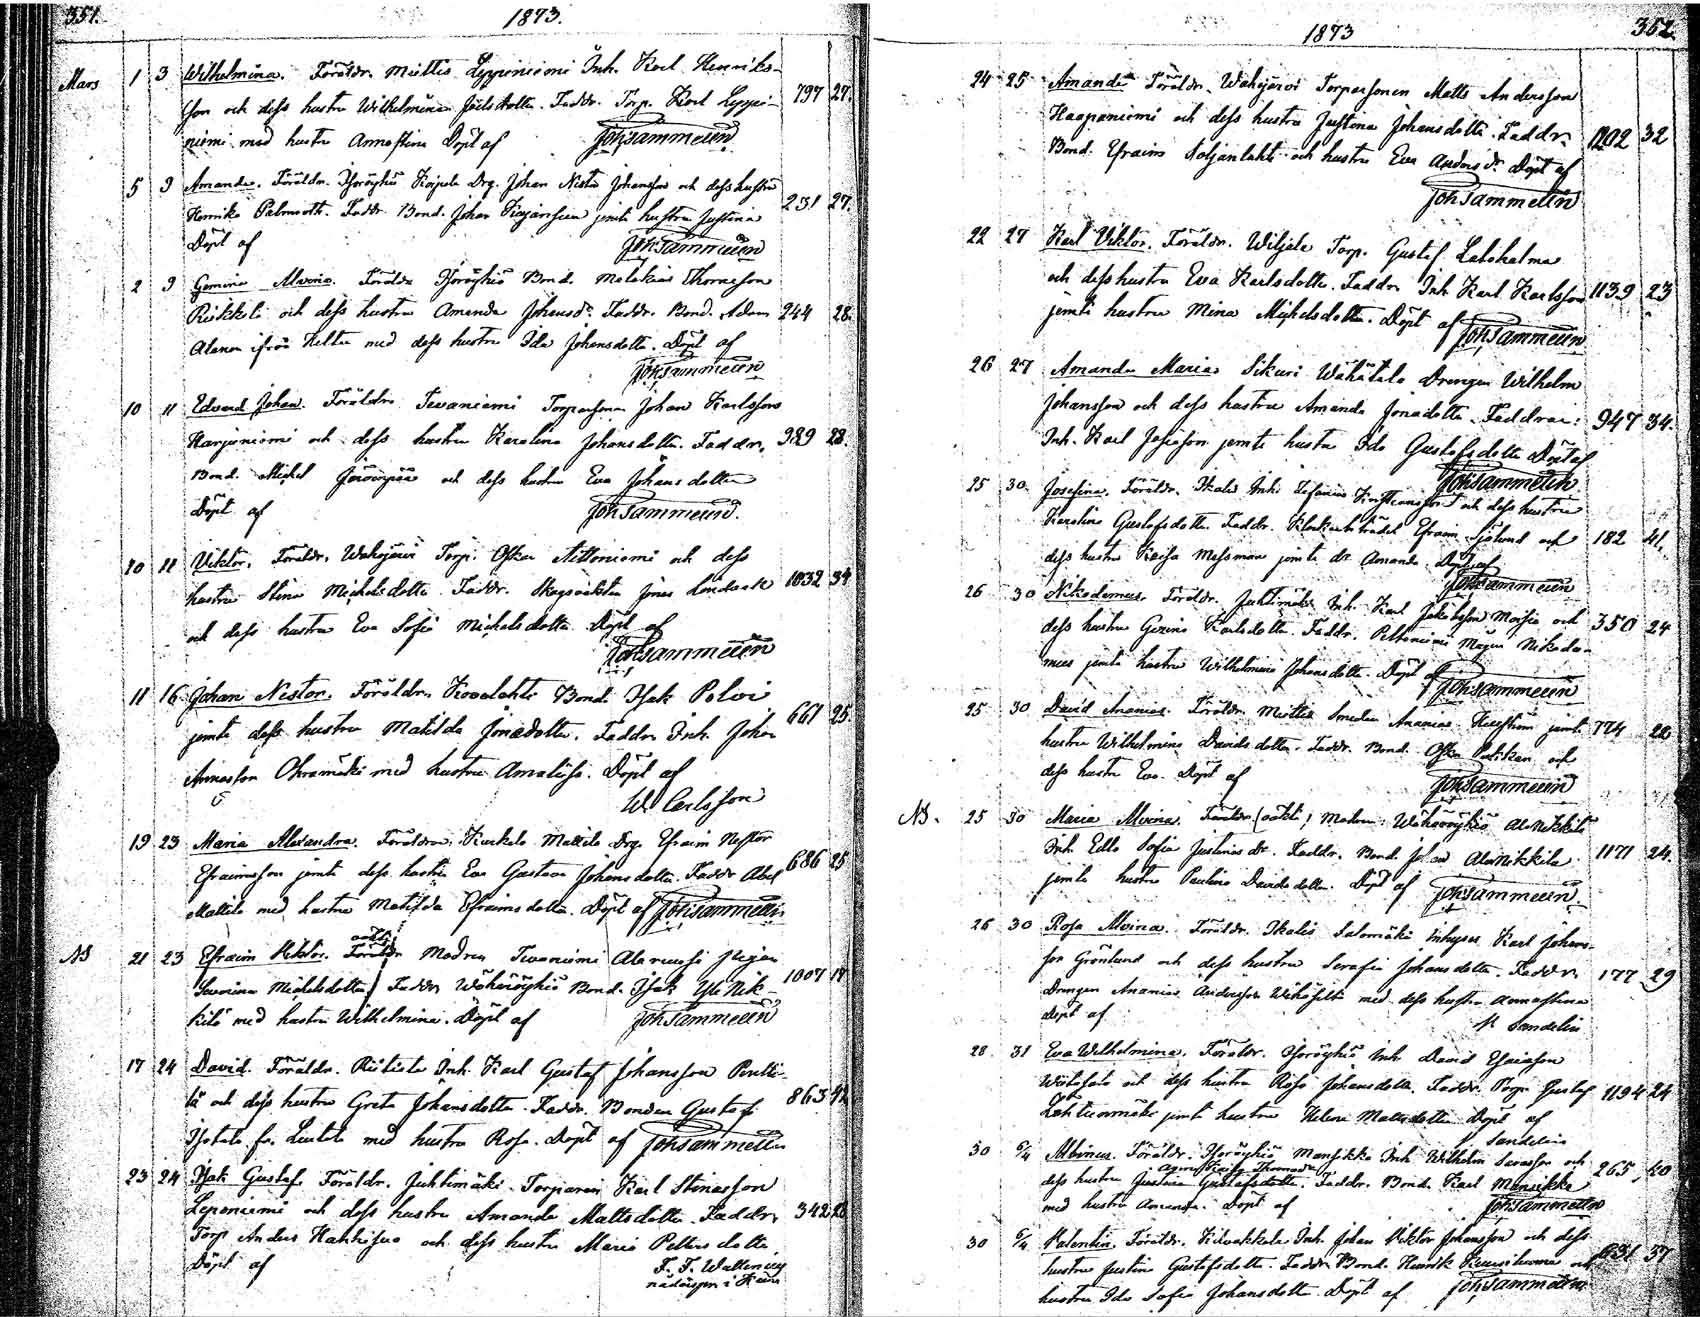 351.
1873.
Mars 1 3 Wilhelmina. Föräldr. Miettis Leppiniemi Inh. Karl Henriks-
son och dess hustru Wilhelmina Faddr. Torp. Karl Leppi- 797 27.
niemi med hustru Annastina Döpt af Joh. Tammelin
5 9 Amanda. Föräldr. Drg. Johan Nestor Johansson och dess hustru
Henrika Palmroth. Faddr. Bond. Johan jemte hustru Justina 231 27.
Döpt af Joh. Tammelin
2 9 Gemina Alvina. Föräldr. Bond. Malakias Thomasson
Riikkeli och dess hustru Amanda Johansdr. Faddr. Bond. Adam 244 28.
Alanen ifrån med dess hustru Ida Johansdotter. Döpt af
Joh. Tammelin
10 11 Edvard Johan. Föräldr. Tevaniemi Torparsonen Johan Karlsson
Harjuniemi och dess hustru Karolina Johansdotter. Faddr. 989 28.
Bond. Michel Järvenpää och dess hustru Eva Johansdotter
Döpt af Joh. Tammelin.
10 11 Viktor. Föräldr. Wahojärvi Torp. Oskar och dess
hustru Stina Michelsdotter. Faddr. Jonas 1032 34
och dess hustru Eva Sofia Michelsdotter Döpt af
Joh. Tammelin
11 16 Johan Nestor. Föräldr. Kovalahti Bond. Isak Polvi
jemte dess hustru Matilda Jonædotter. Faddr. Inh. Johan 661 25
Annasson Ohramäki med hustru Amalusa. Döpt af
W. Carlsson
19 23 Maria Alexandra. Föräldrar. Mattila Drg. Efraim Nestor
Efraimsson jemte dess hustru Eva Gustava Johansdotter. Faddr. Abel 686 25
Mattila med hustru Matilda Efraimsdotter. Döpt af Joh. Tammelin
NB 21 23 Efraim Viktor. oäkta Föräldr. Modren Tevaniemi pigan
Severina Michelsdotter Faddr. Wähäröyhiö Bond. Isak Yli Nik- 1007 18
kilä med hustru Wilhelmina. Döpt af Joh. Tammelin
17 24 David. Föräldr. Riitiala Inh. Karl Gustaf Johansson Pentti-
lä och dess hustru Greta Johansdotter. Faddr. Bonden Gustaf 863 42
Isotalo fr. med hustru Rosa. Döpt af Joh. Tammelin
23 24 Isak Gustaf. Föräldr. Juhtimäki Torparen Karl Stinasson
Lepeniemi och dess hustru Amanda Mattsdotter. Faddr. 342 28
Torp Anders och dess hustru Maria Pettersdotter
Döpt af F. F. Wallenius
352.
1873
24 25 Amanda Föräldr. Wahojärvi Torparsonen Matts Andersson
Haapaniemi och dess hustru Justina Johansdotter. Faddr. 1202 32
Bond. Efraim och hustru Eva Andersdr. Döpt af
Joh. Tammelin
22 27 Karl Viktor. Föräldr. Torp. Gustaf
och dess hustru Eva Karlsdotter. Faddr. Inh. Karl Karlsson 1139 23
jemte hustru Mina Michelsdotter. Döpt af Joh. Tammelin
26 27 Amanda Maria Sikuri Wähätalo Drengen Wilhelm
Johansson och dess hustru Amanda Jonædotter. Faddrar: 947 34.
Inh. Karl jemte hustru Ida Gustafsdotter Döpt af
Joh. Tammelin
25 30 Josefina. Föräldr. Ikalis Inh. Stefanus Kristiansson och dess hustru
Karolina Gustafsdotter. Faddr. Efraim och 182 41.
dess hustru Kaisa jemte dr. Amanda. Döpt af
Joh. Tammelin
26 30 Nikodemus. Föräldr. Juhtimäki Inh. Karl Jakobsson och 350 24
dess hustru Gerina Karlsdotter. Faddr. Peltoniemi Nikode-
mus jemte hustru Wilhelmina Johansdotter. Döpt af
Joh. Tammelin
25 30 David Ananias. Föräldr. Miettis Smeden Ananias jemte 774 22
hustru Wilhelmina Davidsdotter. Faddr. Bond. Oskar och
dess hustru Eva. Döpt af Joh. Tammelin
NB. 25 30 Maria Alvina. Föräldr. (oäkta) Modren: Wähäröyhiö AlaNikkilä
Inh. Edla Sofia Justinas dr. Faddr. Bond. Johan AlaNikkilä 1171 24.
jemte hustru Paulina Davidsdotter. Döpt af Joh. Tammelin.
26 30 Rosa Alvina. Föräldr. Ikalis Salomäki Inhyses Karl Johans-
son Grönlund och dess hustru Serafia Johansdotter. Faddr. 177 29
Drengen Ananias Andersson med dess hustru Annastina
döpt af Sandelin
28 31 Eva Wilhelmina. Föräldr. Inh. David Esaiasson
och dess hustru Rosa Johansdotter. Faddr. Torp. Gustaf 1194 24
jemte hustru Helena Mattsdotter Döpt af
Sandelin
30 6/4 Albinus. Föräldr. Mansikka Inh. Wilhelm och
dess hustru Gustafsdotter. Faddr. Bond. Karl Mansikka 265 40
med hustru Amanda. Döpt af Joh. Tammelin
30 6/4 Valentin. Föräldr. Kilvakkala Inh. Johan Viktor Johansson och dess
hustru Justina Gustafsdotter. Faddr. Bond. Henrik och 631 37
hustru Ida Sofia Johansdotter. Döpt af Joh. Tammelin